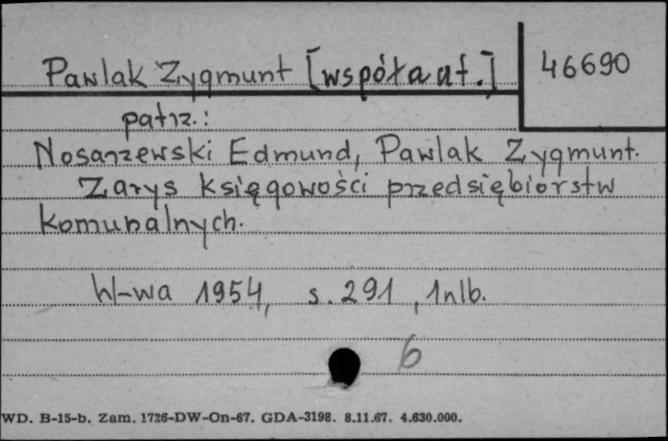 Pawlak Zygmunt [współaut.] 46690
patrz.:
Nosarzewski Edmund, Pawlak Zygmunt.
Zarys księgowości przedsiębiorstw
komunalnych.
W-wa 1954, s. 291, 1nlb.
6
WD. B-15-b. Zam. 1726-DW-On-67. GDA-3198. 8.11.67. 4.630.000.